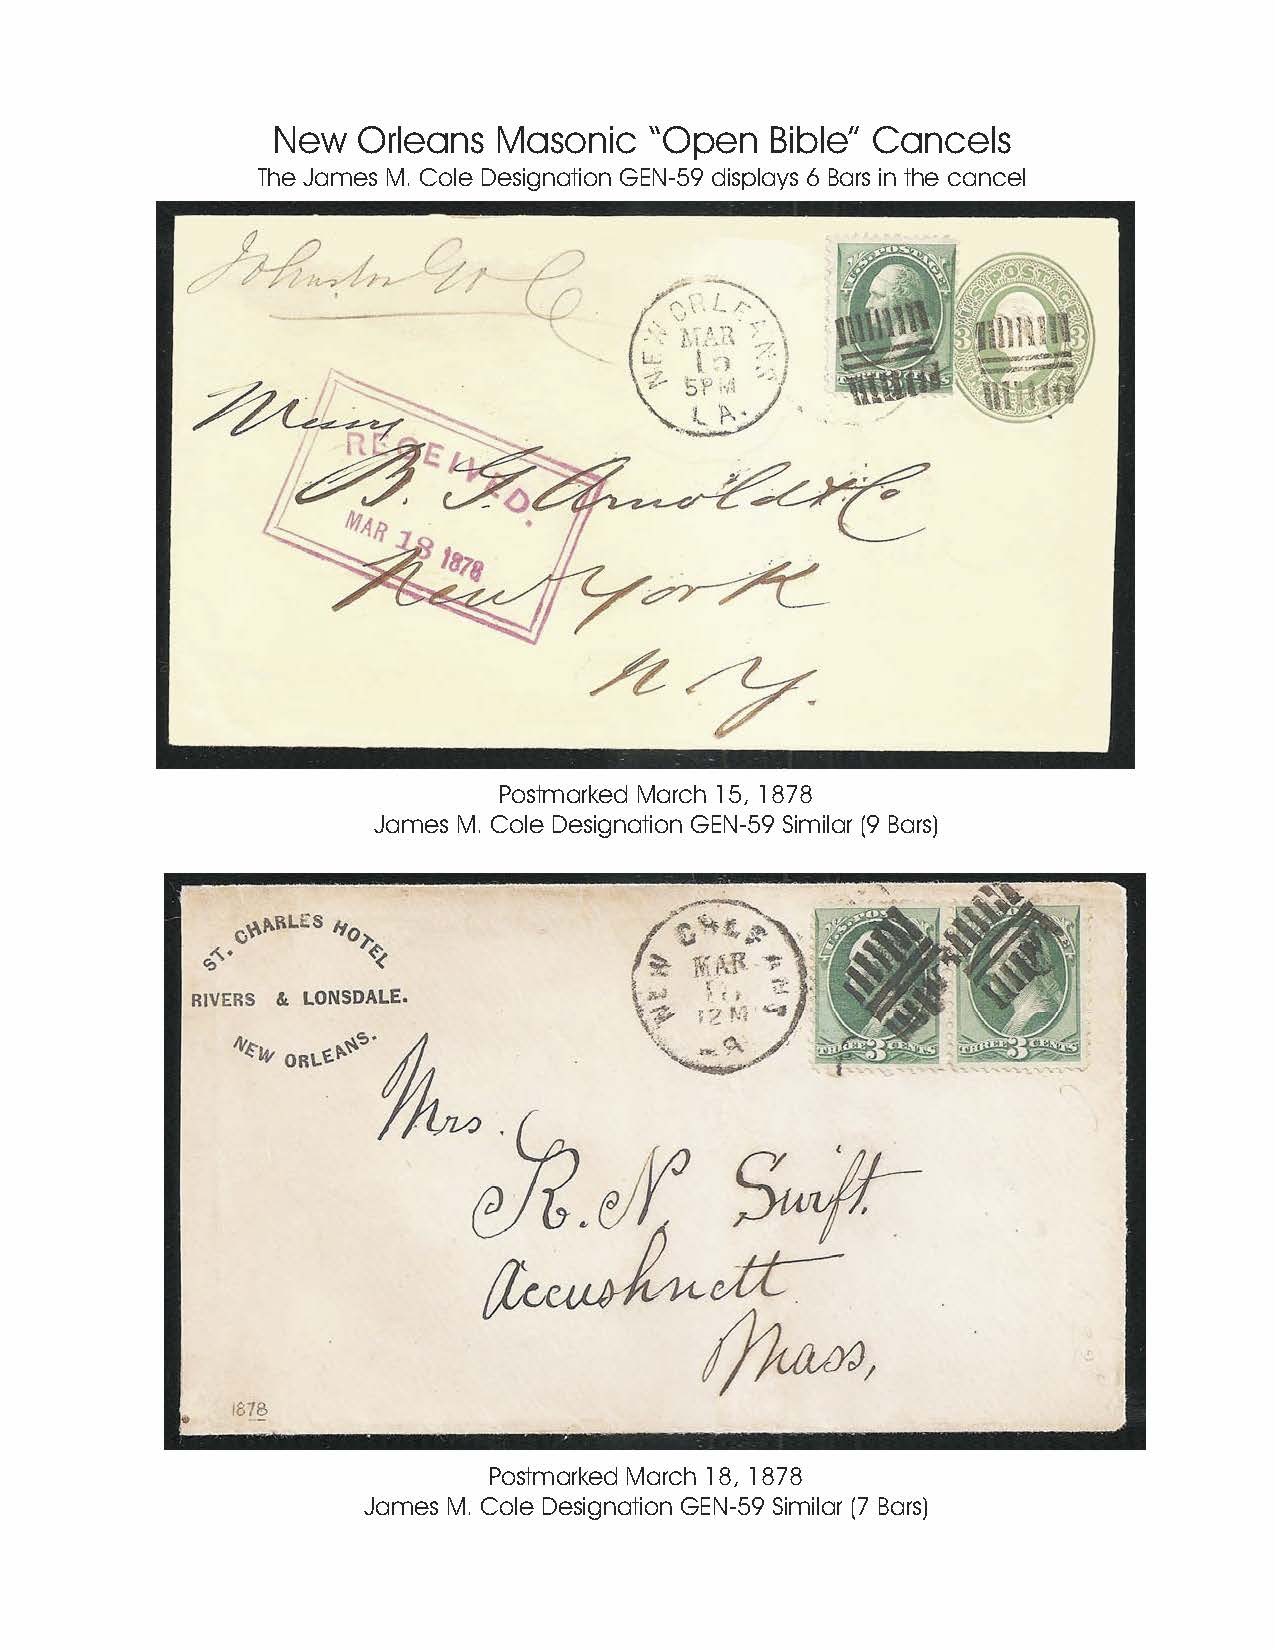 New Orleans Masonic "Open Bible" Cancels
The James M. Cole Designation GEN-59 displays 6 Bars in the cancel
Johnston
U.S. POSTAGE
NEW ORLEANS
MAR
15
5PM
LA.
3 3
Messrs
RECEIVED.
B. G. Arnold & Co
MAR 18 1878
New York
N.Y.
Postmarked March 15, 1878
James M. Cole Designation GEN-59 Similar (9 Bars)
ST. CHARLES HOTEL
RIVERS & LONSDALE.
NEW ORLEANS.
NEW ORLEANS
MAR
12 M
THREE 3 CENTS
THREE 3 CENTS
Mrs.
R. N. Swift.
Accushnett
Mass,
1878
Postmarked March 18, 1878
James M. Cole Designation GEN-59 Similar (7 Bars)